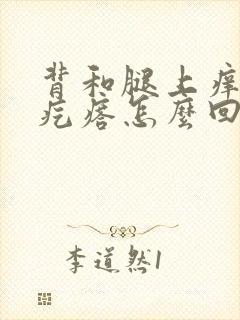 背和腿上痒
疙瘩怎麼回
李道然1